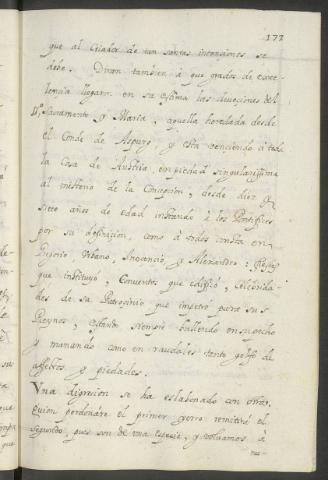 177
que al Criador de tan santas intenciones se
debe. Diran tambien à que grados de exce-
lencia llegaron en su estima las devociones del
SSo. Sacramento y Maria, aquella heredada desde
el Conde de Aspurg, y esta venciendo à toda
la Casa de Austria, en piedad singularissima
al misterio de la Concepcion, desde diez y
siete años de edad instando à los Pontifices
por su definicion, como à todos consta en
Gregorio Urbano, Inocencio, y Alexandro:
que instituyò, Conventos que edificò, Celebrida-
des de su Patrocinio que impetrò para sus
Reynos, estando siempre bullendo en su pecho
y manando como en raudales tanto golfo de
afectos y piedades.
Vna digresion se ha eslabonado con otra,
quien perdonàre el primer yerro remitirà el
segundo, pues son de una especie, y volvamos a